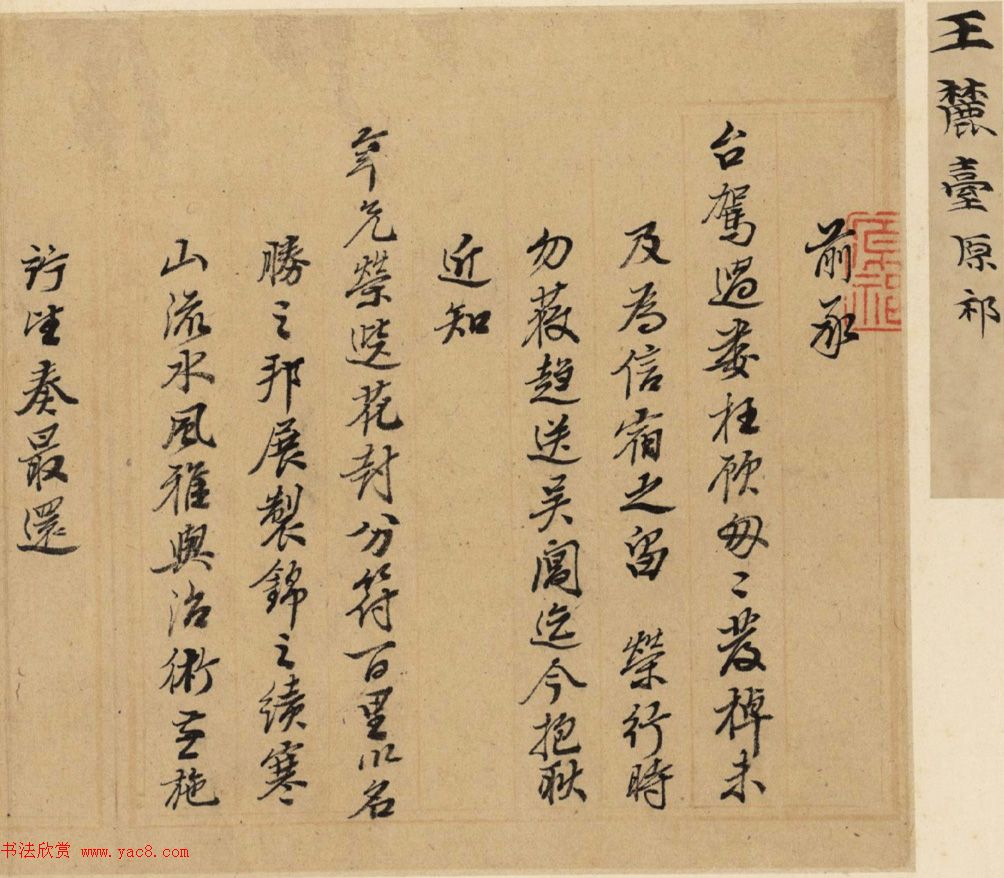 王麓臺原祁
前承
台駕過婁枉顧匆〻發棹未
及為信宿之留 榮行時
勿获趋送吴閶迄今抱耿
近知
年兄榮蒞花封分符百里以名
勝之邦展製錦之績寒
山流水風雅與治術並施
佇望奏最還
书法欣赏 www.yac8.com